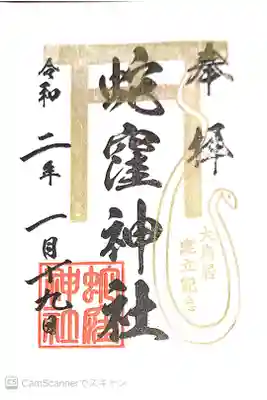 奉拝
大鳥居
建立記念
蛇窪神社
蛇窪
神社
令和二年一月十九日
CS CamScannerでスキャン